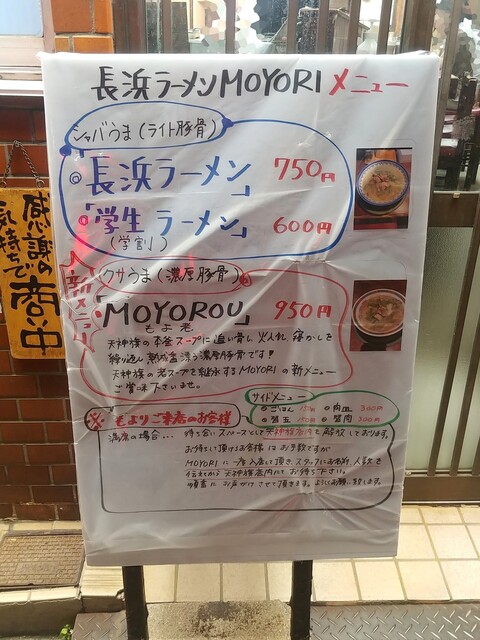 長浜ラーメンMOYORI メニュー
シャバうま(ライト豚骨)
◎「長浜ラーメン」 750円
◎「学生ラーメン」 600円
(学割)
新メニュー
クサうま(濃厚豚骨)
「MOYOROU」 950円
もよ老
天神旗の本釜スープに追い骨し、火入れ、寝かしを
繰り返し熟成香漂う濃厚豚骨です!
天神旗の老スープを継承するMOYORIの新メニュー
ご賞味下さいませ。
サイドメニュー
◎ごはん 150円 ◎肉皿 300円
◎替玉 150円 ◎替肉 300円
※ もよりご来店のお客様
満席の場合... 待ち合いスペースとして天神旗店内を解放しております。
お待ちいただけるお客様はお手数ですが
MOYORIに一度入店して頂き、スタッフにお名前、人数を
伝えてから天神旗店内にてお待ち下さい。
順番にお声がけさせて頂きます。よろしくお願い致します。
感謝の
気持ちで
商い中